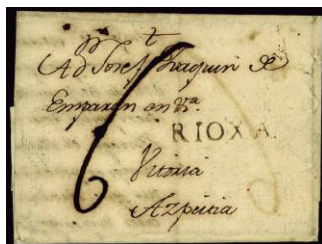 A d Josef Joaquin de
Emparan en V.ª
RIOXA.
Vitoria
Azpeitia
6